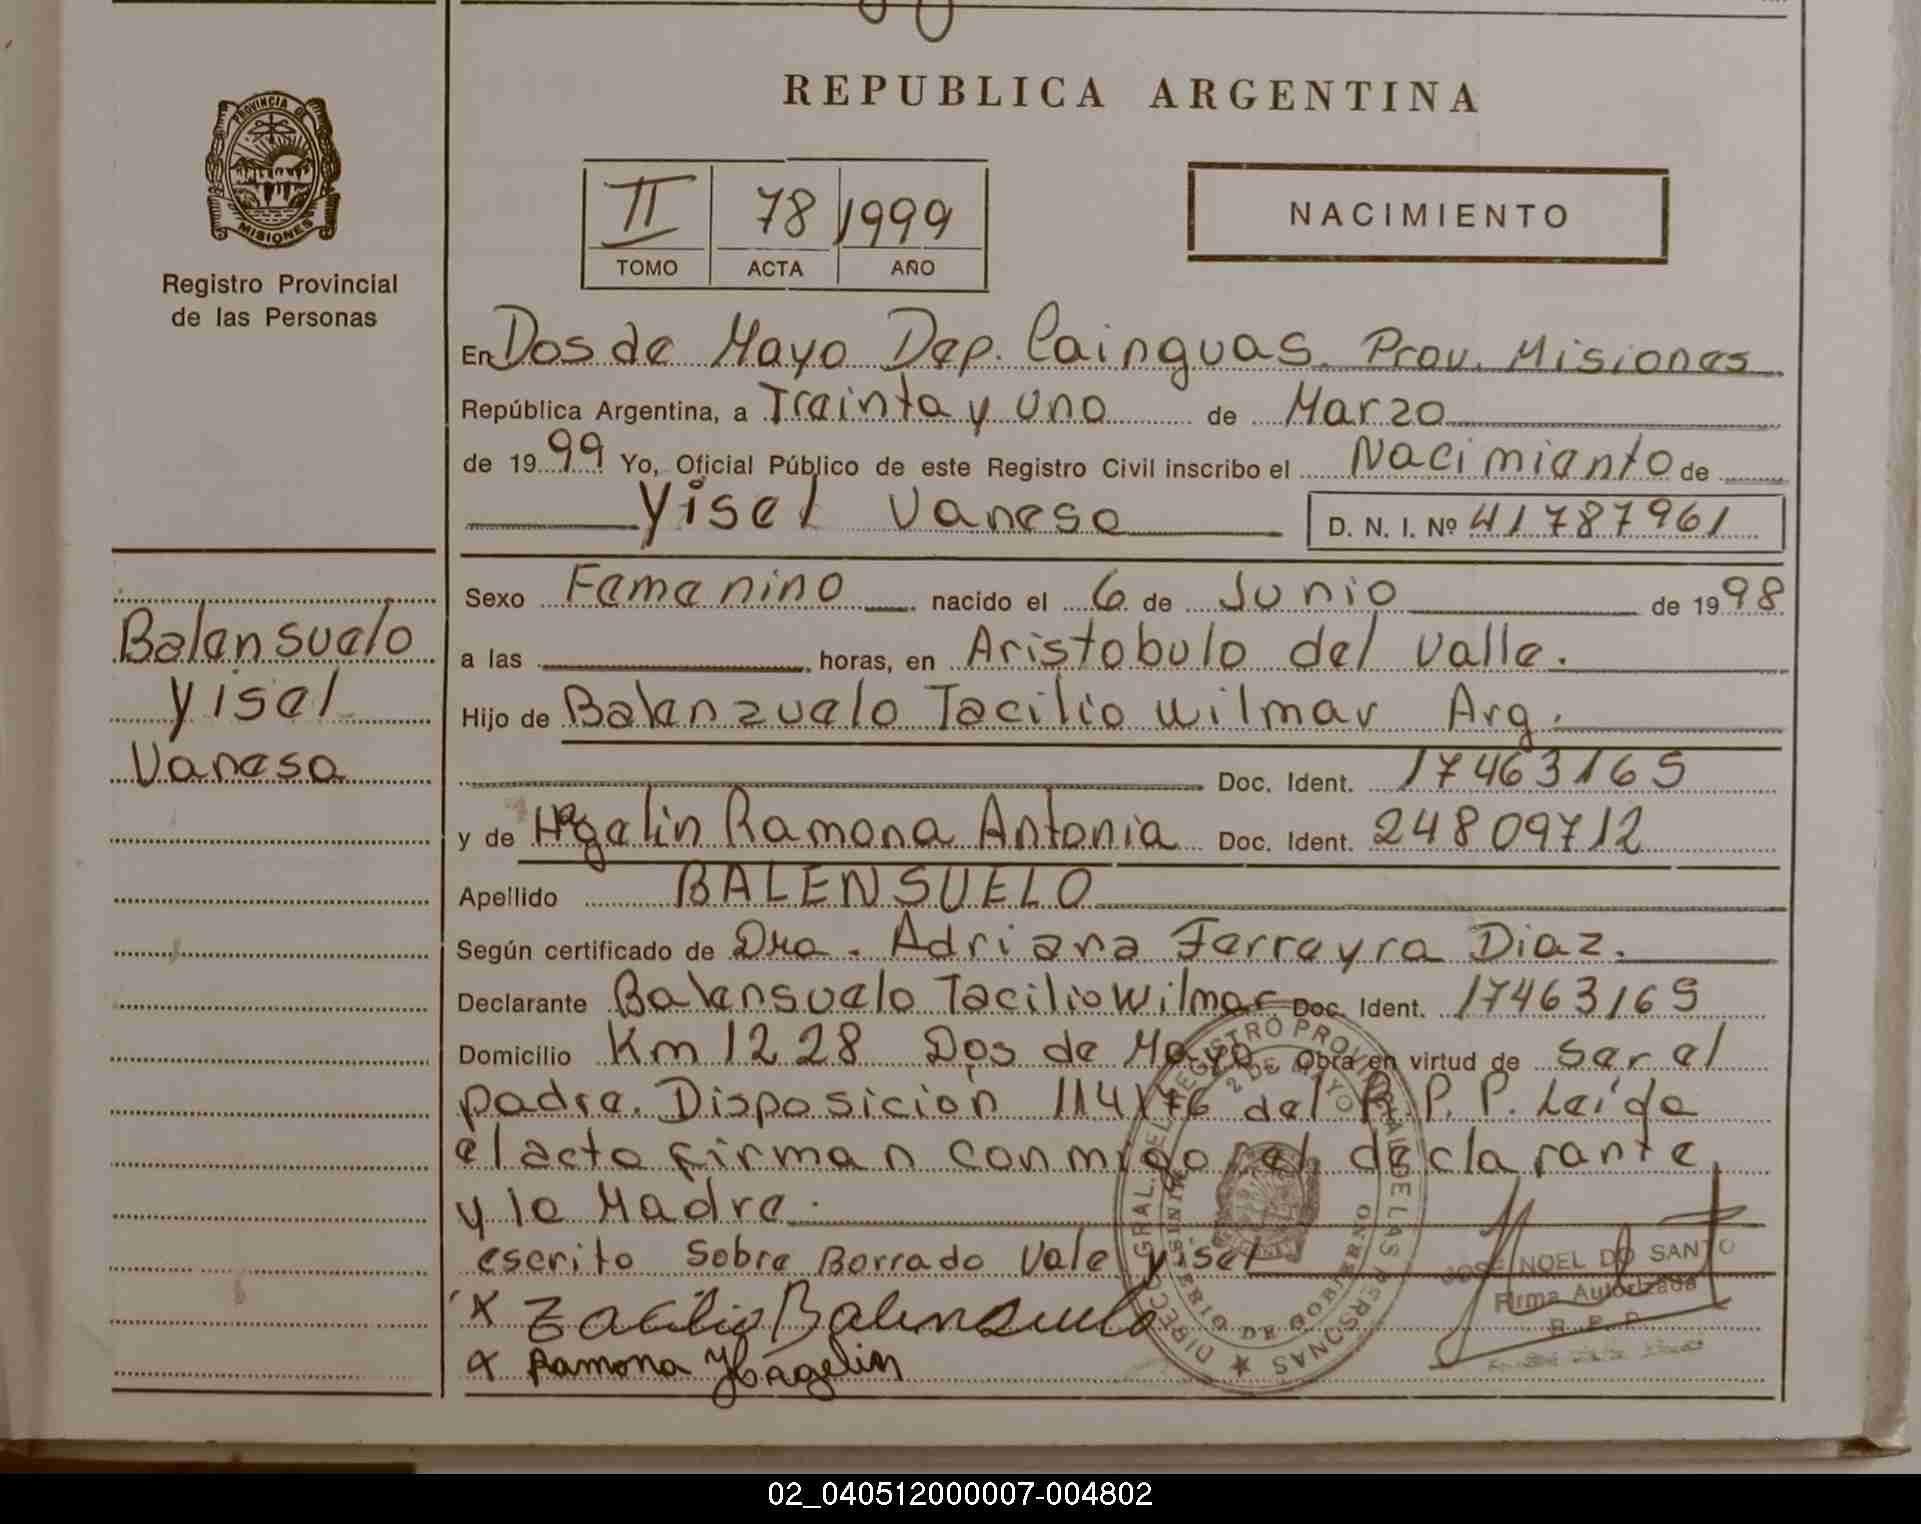 REPUBLICA ARGENTINA
PROVINCIA DE
MISIONES
Registro Provincial
de las Personas
II 78 1999
TOMO ACTA AÑO
NACIMIENTO
En Dos de Mayo Dep. Cainguas. Prov. Misiones
República Argentina, a Treinta y uno de Marzo
de 1999 Yo, Oficial Público de este Registro Civil inscribo el Nacimiento de
Yisel Vanesa D. N. I. Nº 41787961
Balensuelo
Yisel
Vanesa
Sexo Femenino nacido el 6 de Junio de 1998
a las horas, en Aristobulo del Valle.
Hijo de Balenzuelo Tacilio Wilmar Arg.
Doc. Ident. 17463165
y de Hagelin Ramona Antonia Doc. Ident. 24809712
Apellido BALENSUELO
Según certificado de Dra. Adriana Ferreyra Diaz.
Declarante Balensuelo Tacilio Wilmar Doc. Ident. 17463165
Domicilio Km 1228 Dos de Mayo Obra en virtud de ser el
padre. Disposición 114/76 del R.P.P. Leída
el acta firman conmigo el declarante
y la Madre.
escrito sobre Borrado Vale Yisel
x Tacilio Balensuelo
x Ramona Hagelin
DIRECC. GRAL. DEL REGISTRO PROVINCIAL DE LAS PERSONAS
2 DE MAYO
MINISTERIO DE GOBIERNO
JOSE NOEL DO SANTO
Firma Autorizada
R. P. P.
02_040512000007-004802